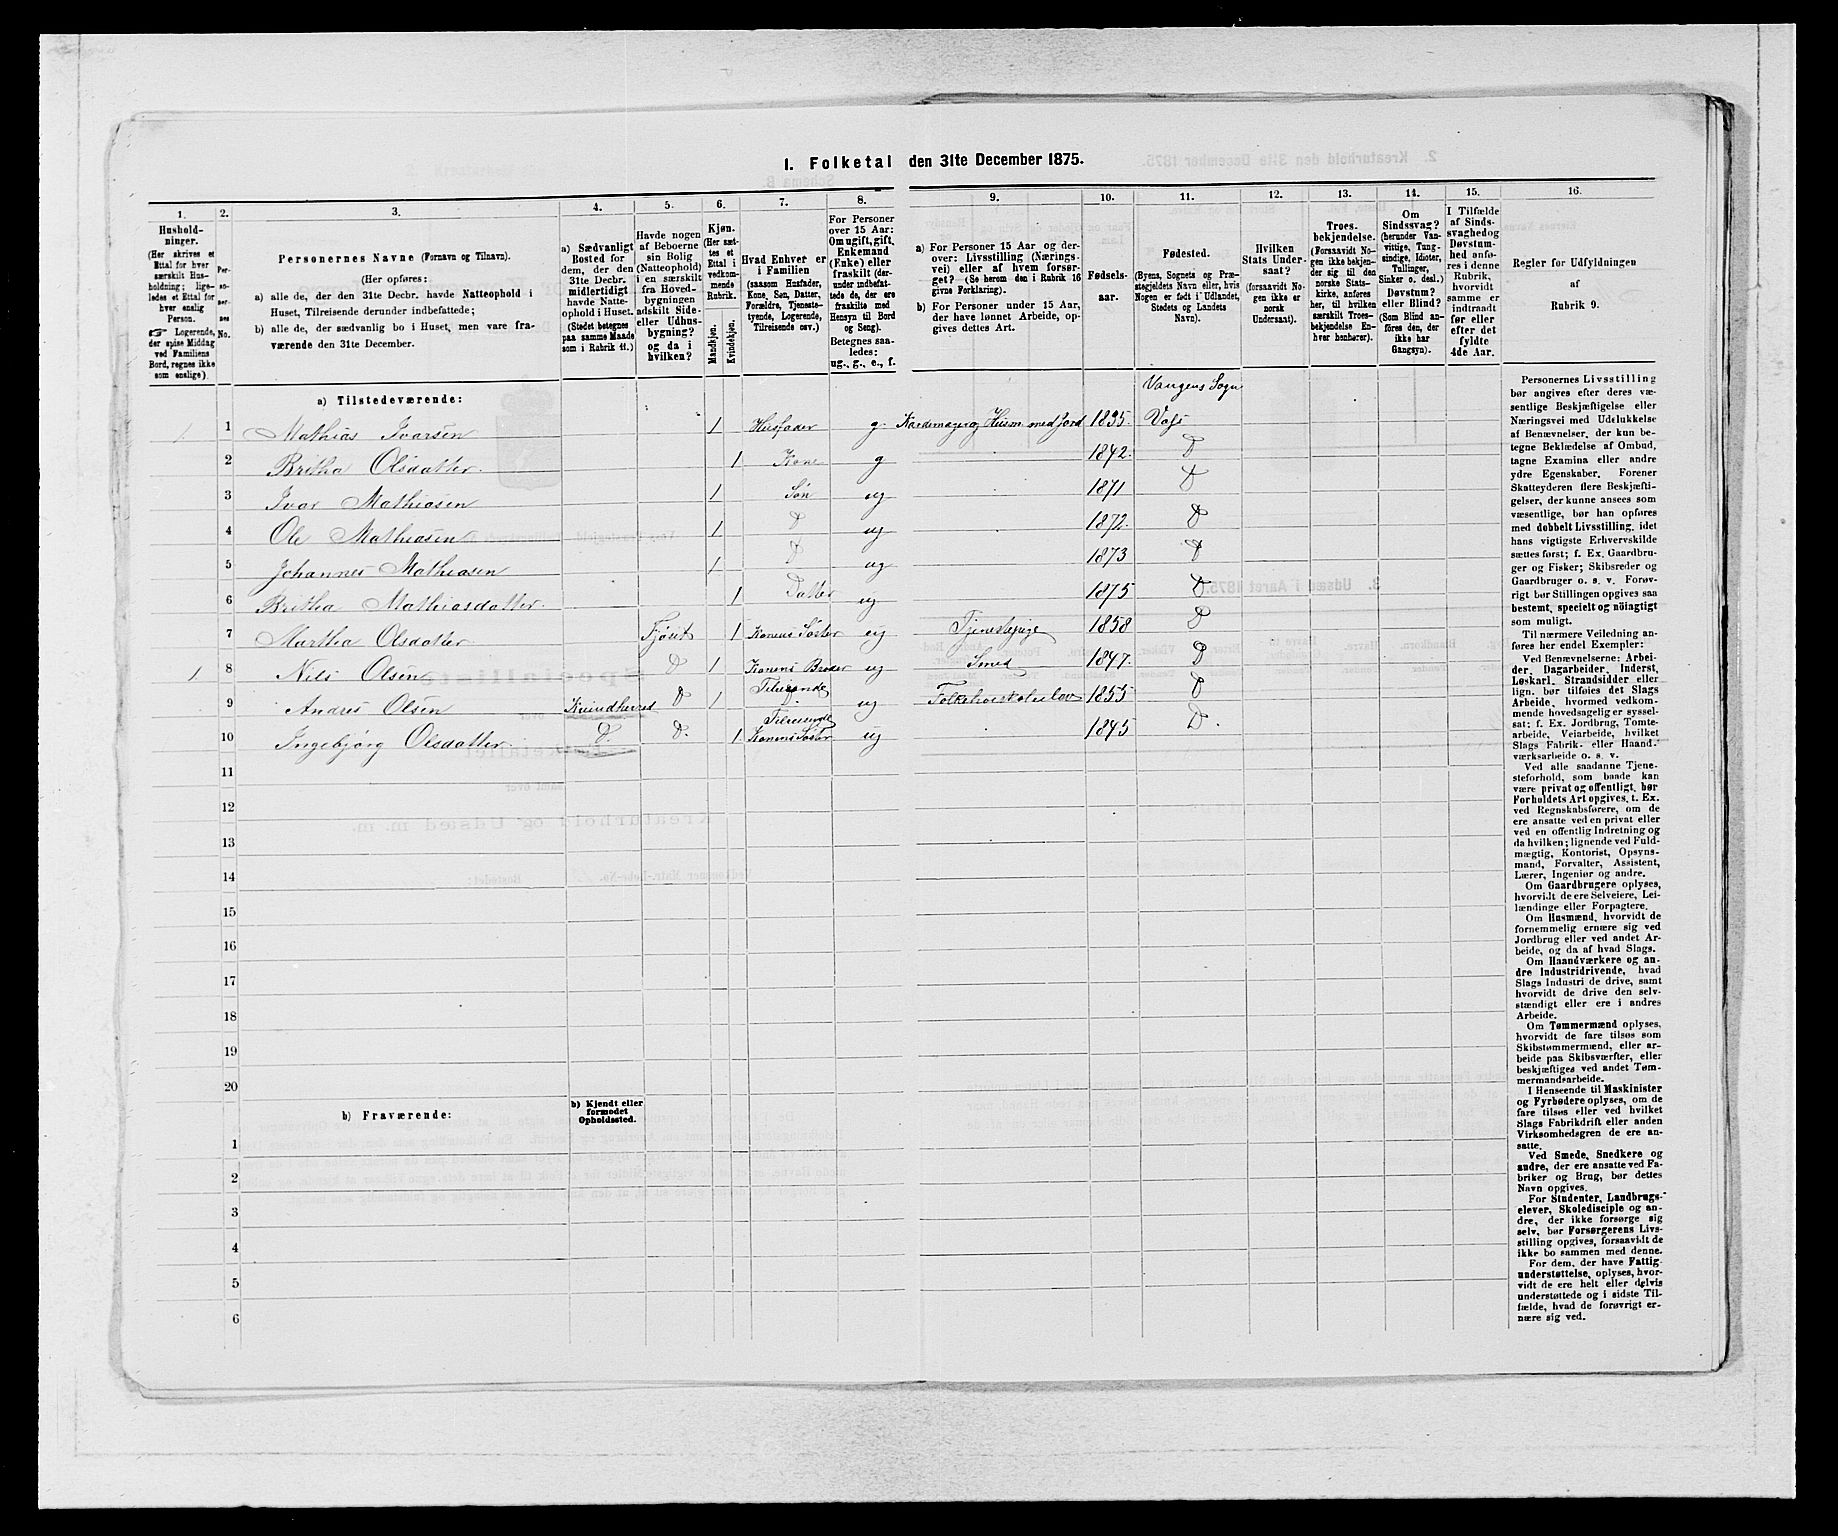 1. Folketal den 31te December 1875.
1.
Husholdninger.
(Her skrives et
Ettal for hver
særskilt Husholdning;
ligeledes
et Ettal for
hver enslig
Person.
☞ Logerende,
der spise Middag
ved Familiens
Bord, regnes ikke
som enslige).
2.
Personernes
No.
3.
Personernes Navne (Fornavn og Tilnavn).
(Her opføres:
a) alle de, der den 31te Decbr. havde Natteophold i
Huset, Tilreisende derunder indbefattede;
b) alle de, der sædvanlig bo i Huset, men vare fraværende
den 31te December.
4.
a) Sædvanligt
Bosted for
dem, der den
31te Decbr.
midlertidigt
havde Natteophold
i Huset.
(Stedet betegnes
paa samme Maade
som i Rubrik 11.)
5.
Havde nogen
af Beboerne
sin Bolig
(Natteophold)
i en særskilt
fra Hovedbygningen
adskilt Side-
eller Udhusbygning?
og da i
hvilken?
6.
Kjøn.
(Her sættes
et
Ettal i
vedkommende
Rubrik.
Mandkjøn.
Kvindekjøn.
7.
Hvad Enhver er
i Familien
(saasom Husfader,
Kone, Søn, Datter,
Forældre, Tjenestetyende,
Logerende,
Tilreisende osv.)
8.
For Personer
over 15 Aar:
Om ugift, gift,
Enkemand
(Enke) eller
fraskilt (derunder
indbefattede
de, der ere
fraskilte med
Hensyn til Bord
og Seng).
Betegnes saaledes:
ug., g., e., f.
9.
a) For Personer 15 Aar og derover:
Livsstilling (Næringsvei)
eller af hvem forsørget?
(Se herom den i Rubrik 16
givne Forklaring).
b) For Personer under 15 Aar,
der have lønnet Arbeide, opgives
dettes Art.
10.
Fødselsaar.
11.
Fødested.
(Byens, Sognets og Præstegjeldets
Navn eller, hvis
Nogen er født i Udlandet,
Stedets og Landets
Navn).
12.
Hvilken
Stats Undersaat?
(forsaavidt Nogen
ikke er
norsk
Undersaat).
13.
Troesbekjendelse.
(Forsaavidt Nogen
ikke bekjender
sig til den
norske Statskirke,
anføres
her, til hvilken
særskilt Troesbekjendelse
Enhver
henhører).
14.
Om
Sindssvag?
(herunder Vanvittige,
Tungsindige,
Idioter,
Tullinger,
Sinker o. desl.)
Døvstum?
eller Blind?
(Som Blind anføres
den, der
ikke har
Gangsyn).
15.
I Tilfælde
af Sindssvaghed
og
Døvstumhed
anføres
i denne
Rubrik,
hvorvidt
samme er
indtraadt
før eller
efter det
fyldte
4de Aar.
16.
Regler for Udfyldningen
af
Rubrik 9.
a) Tilstedeværende:
Vangens Sogn
1 1 Mathias Ivarsen 1 Husfader g. Kardemager og Husm med Jord 1835. Voss
2 Britha Olsdatter. 1 Kone g 1842. D
3 Ivar Mathiasen 1 Søn ug 1871 D
4 Ole Mathiasen 1 D ug 1872. D
5 Johannes Mathiasen 1 D ug 1873 D
6 Britha Mathiasdatter. 1 Datter ug 1875 D
7 Martha Olsdatter Fjøset 1 Konens Søster ug Tjenestepige 1858 D
1 8 Nils Olsen D 1 Konens Broder ug Smed 1847. D
9 Andres Olsen Kvindherred D 1 Tilreisende D ug 1855 D
10 Ingebjørg Olsdatter. D. D. 1. Tilreisende Konens Søster ug 1845 D.
11
12
13
14
15
16
17
18
19
20
b) Fraværende:
b) Kjendt eller
formodet
Opholdssted.
1
2
3
4
5
6
Personernes Livsstilling
bør angives efter deres væsentlige
Beskjæftigelse eller
Næringsvei med Udelukkelse
af Benævnelser, der kun betegne
Beklædelse af Ombud,
tagne Examina eller andre
ydre Egenskaber. Forener
Skatteyderen flere Beskjæftigelser,
der kunne ansees som
væsentlige, bør han opføres
med dobbelt Livsstilling, idet
hans vigtigste Erhvervskilde
sættes først; f. Ex. Gaardbruger
og Fisker; Skibsreder og
Gaardbruger o. s. v. Forøvrigt
bør Stillingen opgives saa
bestemt, specielt og nøiagtigt
som muligt.
Til nærmere Veiledning anføres
her endel Exempler:
Ved Benævnelserne: Arbeider,
Dagarbeider, Inderst,
Løskarl, Strandsidder eller
lign. bør tilføies det Slags
Arbeide, hvormed vedkommende
hovedsagelig er sysselsat;
f. Ex. Jordbrug, Tomtearbeide,
Veiarbeide, hvilket
Slags Fabrik- eller Haandværksarbeide
o. s. v.
Ved alle saadanne Tjenesteforhold,
som baade kan
være privat og offentligt, bør
Forholdets Art opgives, t. Ex.
ved Regnskabsførere, om de
ere ansatte ved en privat eller
ved en offentlig Indretning og
da hvilken; lignende ved Fuldmægtig,
Kontorist, Opsynsmand,
Forvalter, Assistent,
Lærer, Ingeniør og andre.
Om Gaardbrugere oplyses,
hvorvidt de ere Selveiere, Leilændinge
eller Forpagtere.
Om Husmænd, hvorvidt de
fornemmelig ernære sig ved
Jordbrug eller ved andet Arbeide,
og da af hvad Slags.
Om Haandværkere og andre
Industridrivende, hvad
Slags Industri de drive, samt
hvorvidt de drive den selvstændigt
eller ere i andres
Arbeide.
Om Tømmermænd oplyses,
hvorvidt de fare tilsøs som
Skibstømmermænd, eller arbeide
paa Skibsværfter, eller
beskjæftiges ved andet Tømmermandsarbeide.
I Henseende til Maskinister
og Fyrbødere oplyses, om de
fare tilsøs eller ved hvilket
Slags Fabrikdrift eller anden
Virksomhedsgren de ere ansatte.
Ved Smede, Snedkere og
andre, der ere ansatte ved Fabriker
og Brug, bør dettes
Navn opgives.
For Studenter, Landbrugselever,
Skoledisciple og andre,
der ikke forsørge sig
selv, bør Forsørgerens Livsstilling
opgives, forsaavidt de
ikke bo sammen med denne.
For dem, der have Fattigunderstøttelse,
oplyses, hvorvidt
de ere helt eller delvis
understøttede og i sidste Tilfælde,
hvad de forøvrigt ernære
sig ved.